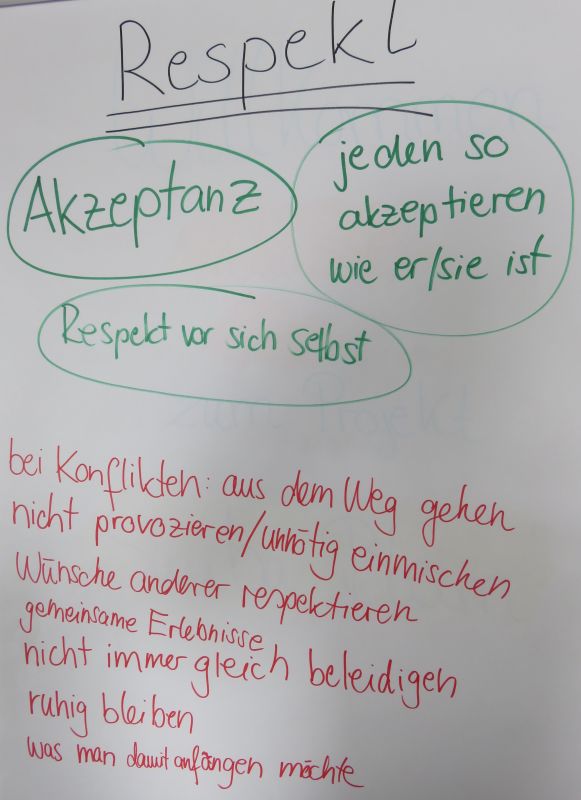 Respekt
Akzeptanz
jeden so
akzeptieren
wie er/sie ist
Respekt vor sich selbst
zum Projekt
bei Konflikten: aus dem Weg gehen
nicht provozieren/unnötig einmischen
Wünsche anderer respektieren
gemeinsame Erlebnisse
nicht immer gleich beleidigen
ruhig bleiben
was man damit anfangen möchte